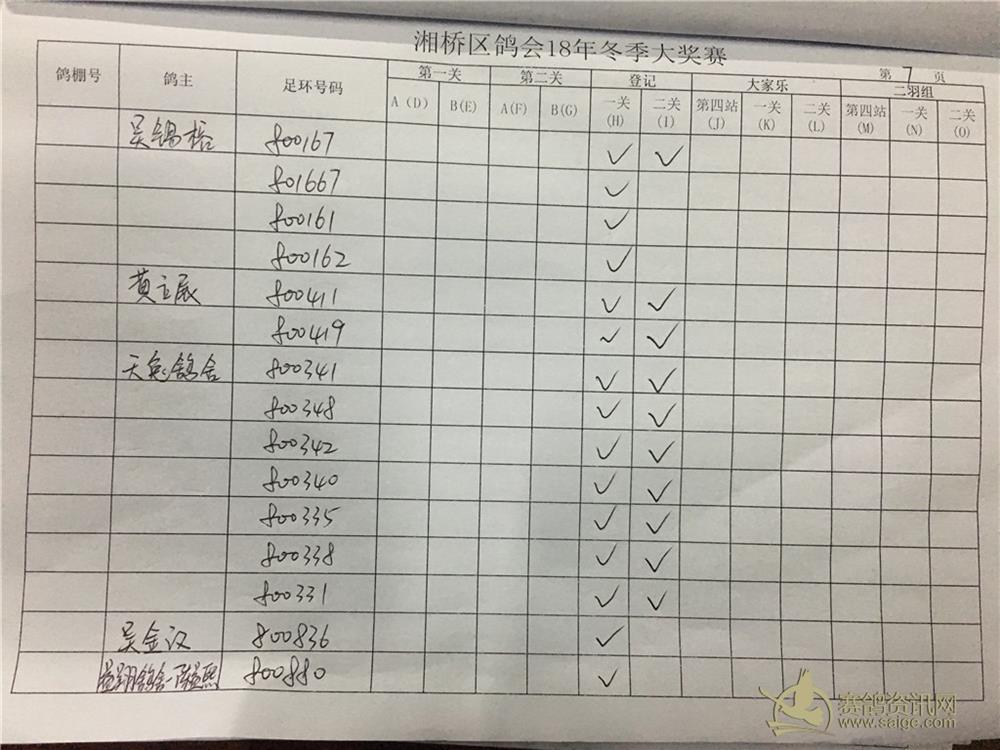 湘桥区鸽会18年冬季大奖赛
第 7 页
鸽棚号 鸽主 足环号码 第一关 第二关 登记 大家乐 二羽组
A(D) B(E) A(F) B(G) 一关(H) 二关(I) 第四站(J) 一关(K) 二关(L) 第四站(M) 一关(N) 二关(O)
吴锡 800167 ✓ ✓
801667 ✓
800161 ✓
800162 ✓
黄立展 800411 ✓ ✓
800419 ✓ ✓
天兔鸽舍 800341 ✓ ✓
800348 ✓ ✓
800342 ✓ ✓
800340 ✓ ✓
800335 ✓ ✓
800338 ✓ ✓
800331 ✓ ✓
吴金汉 800836 ✓
800880 ✓
赛鸽资讯网
www.saige.com